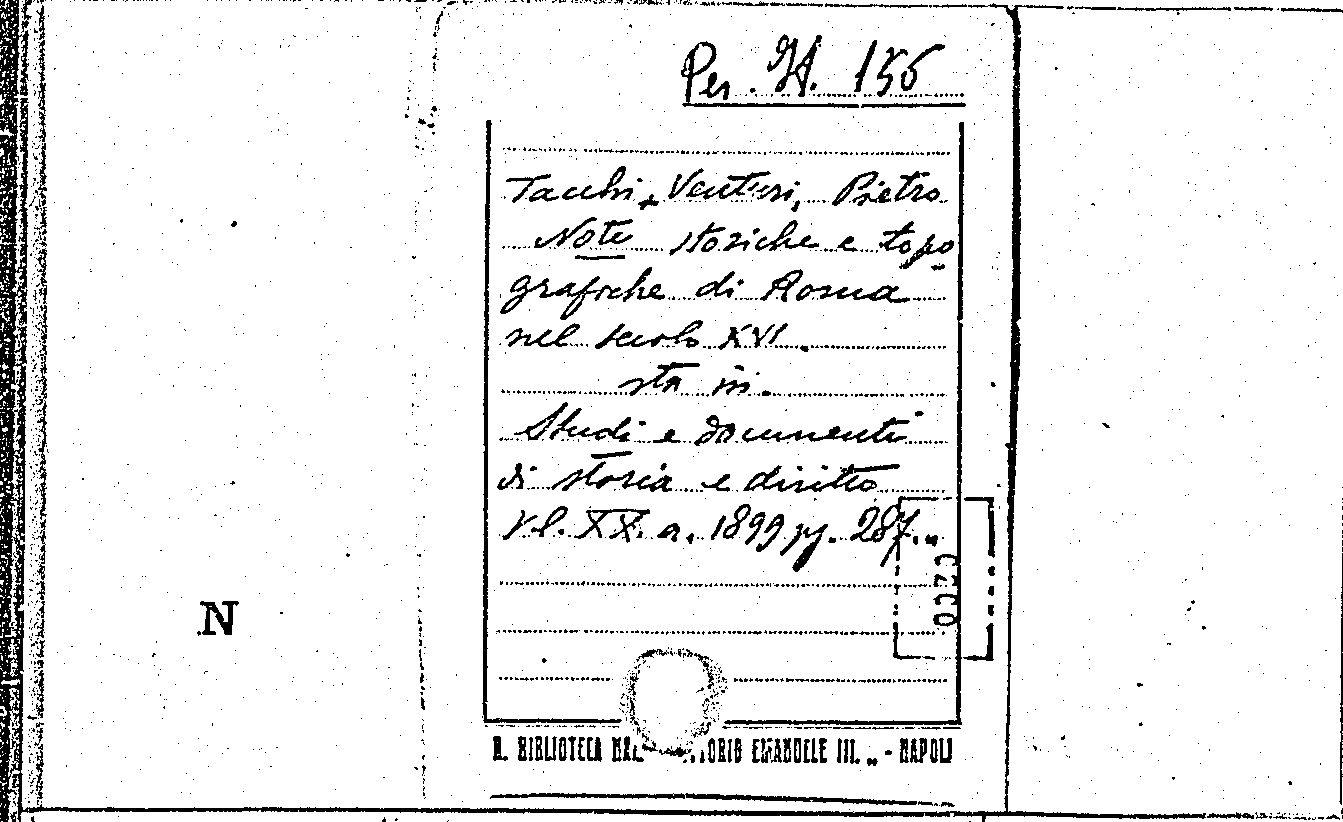 Per. It. 156
Tacchi, Venturi, Pietro
Note storiche e topo
grafiche di Roma
nel secolo XVI.
sta in.
Studi e documenti
di storia e diritto
Vl. XX. a. 1899 pg. 287..
N
R. BIBLIOTECA EMANUELE III. „ - NAPOLI